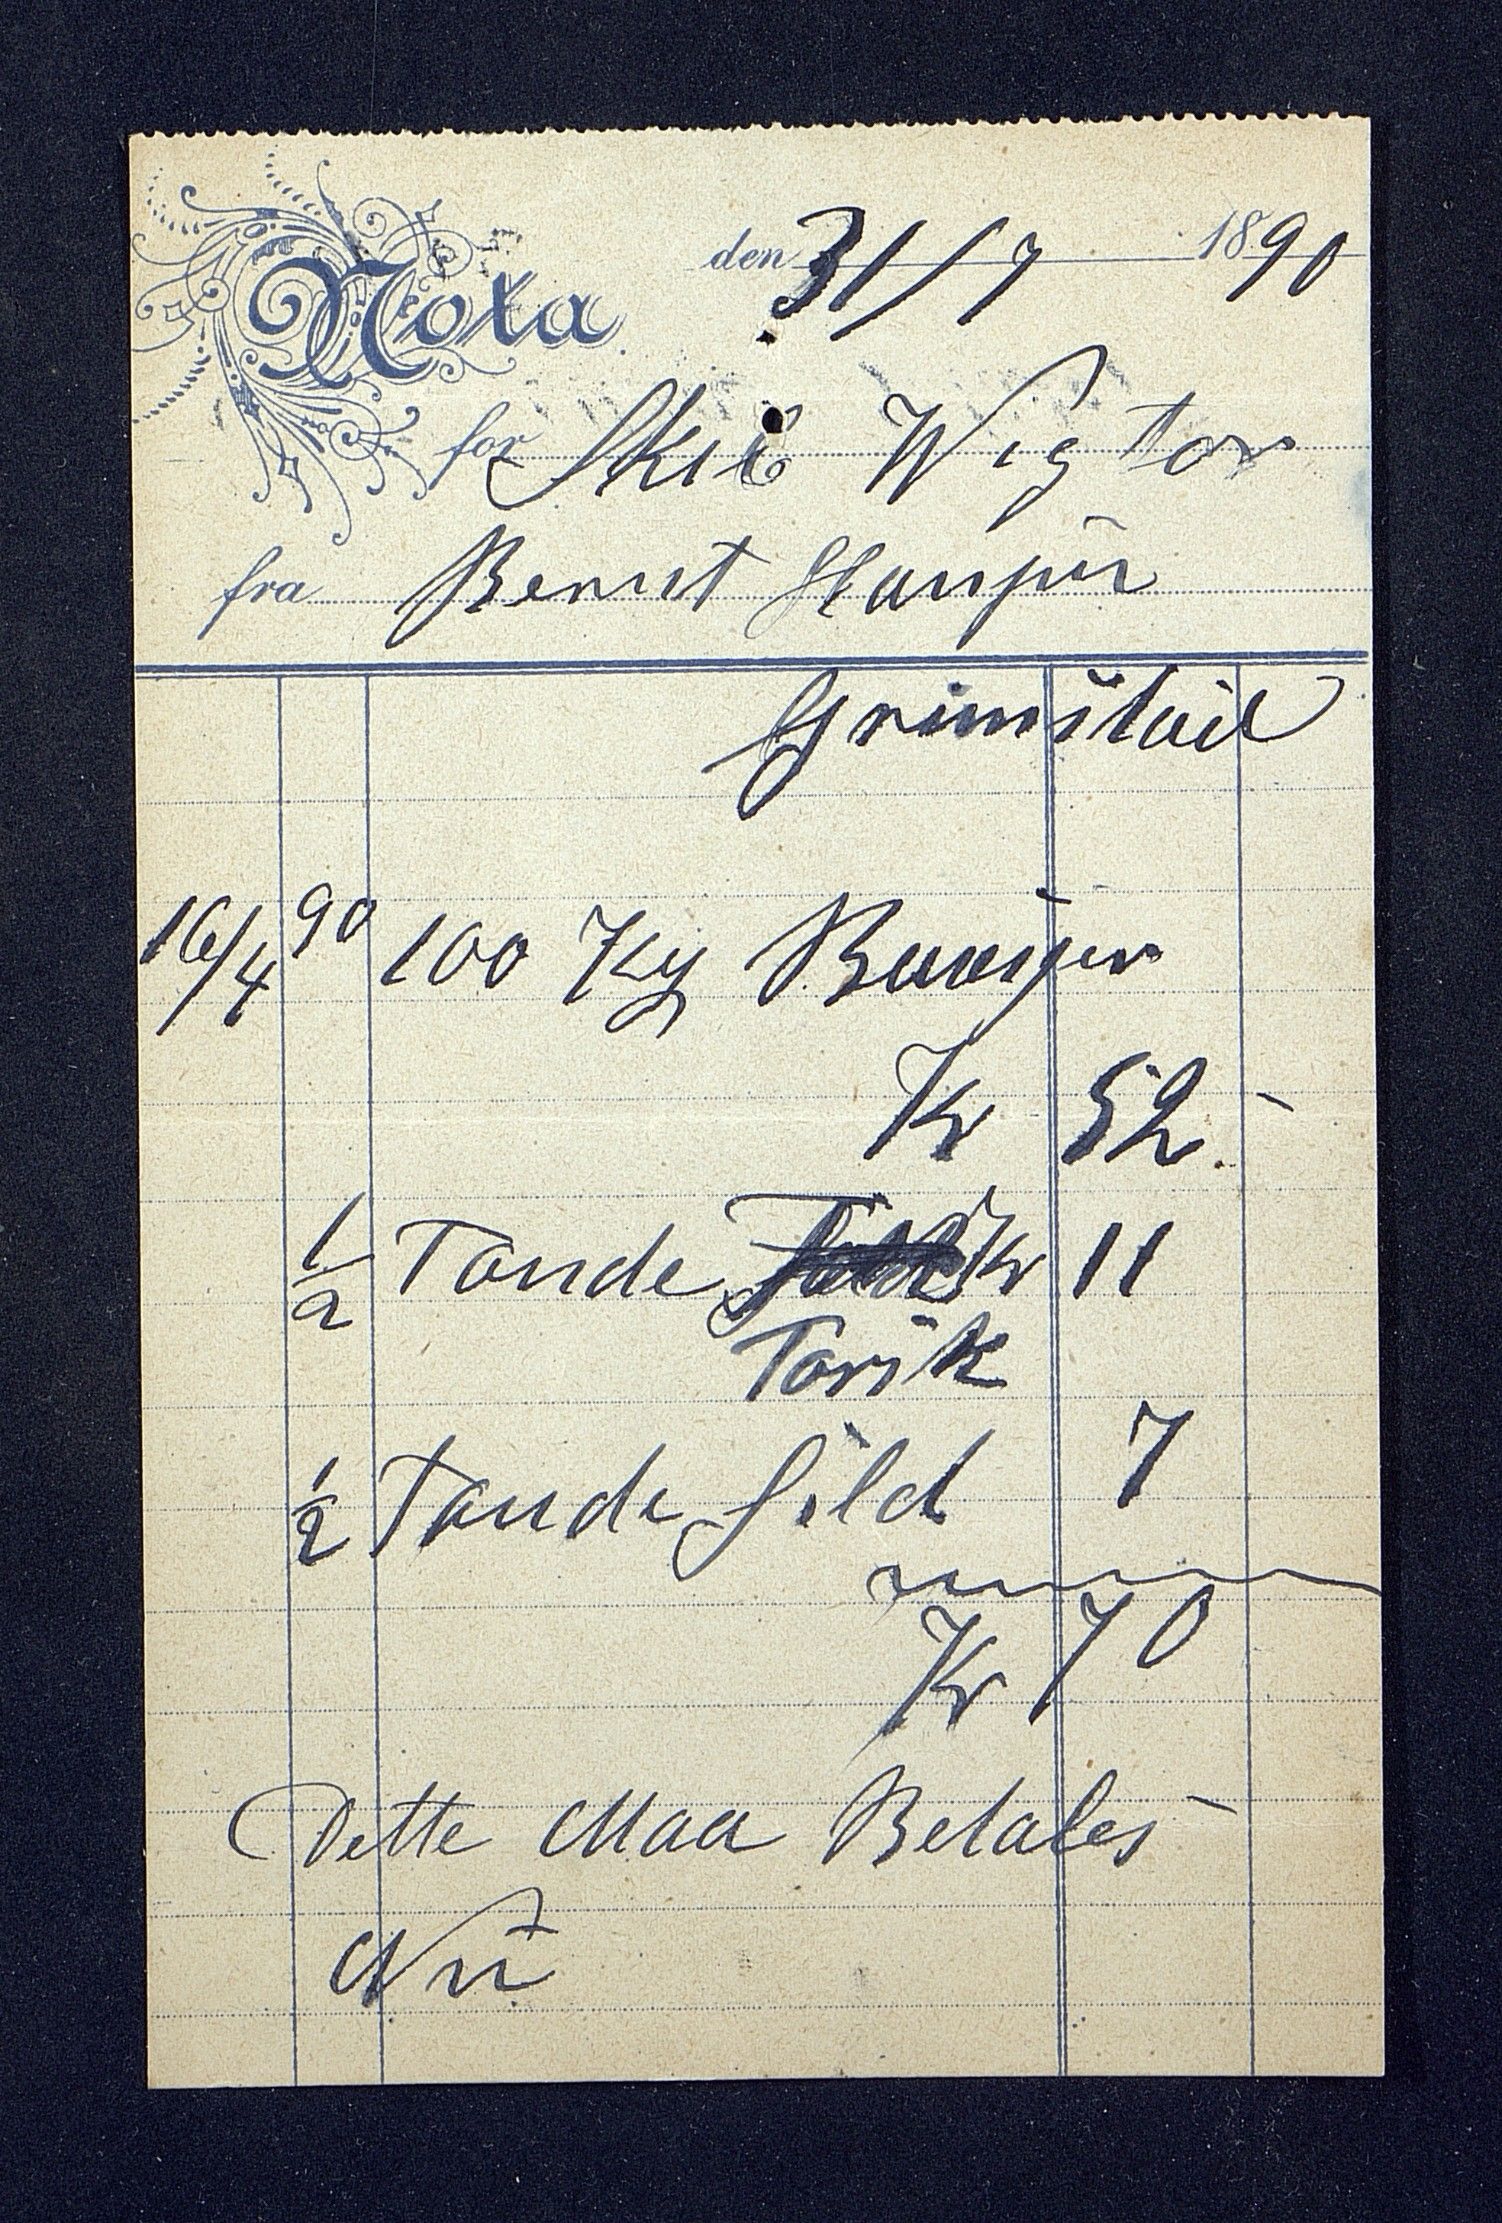 Nota den 31/7 1890
for Skib Wigtor
fra Bernt Hansen
Grimstad
16/4 90 100 Kg
Kr 52 -
1/2 Tande Kr 11
Torsk
1/2 Tande Sild 7
Kr 70
Dette Maa Betales
Nu